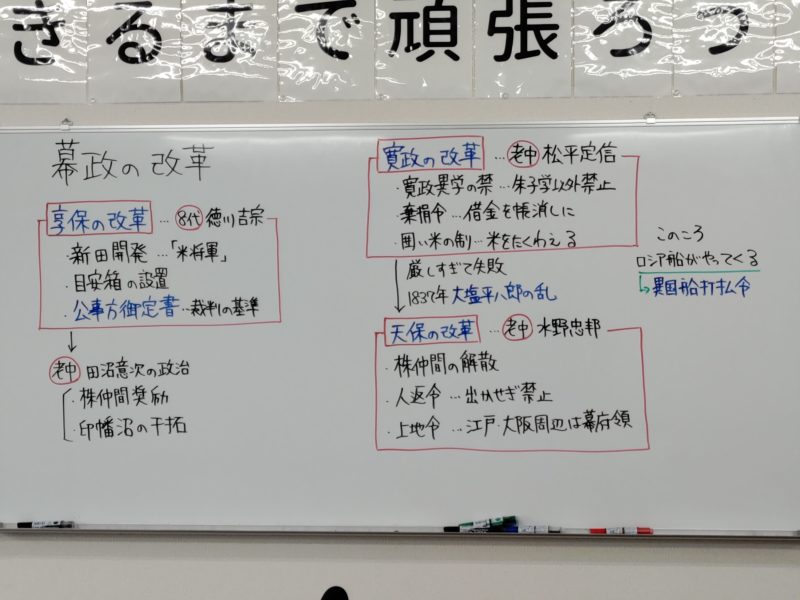 きるまで頑張ろう
幕政の改革
享保の改革 … 8代 徳川吉宗
・新田開発 …「米将軍」
・目安箱の設置
・公事方御定書 … 裁判の基準
↓
老中 田沼意次の政治
・株仲間奨励
・印幡沼の干拓
寛政の改革 … 老中 松平定信
・寛政異学の禁 … 朱子学以外禁止
・棄捐令 … 借金を帳消しに
・囲い米の制 … 米をたくわえる
↓ 厳しすぎて失敗
1837年 大塩平八郎の乱
天保の改革 … 老中 水野忠邦
・株仲間の解散
・人返令 … 出かせぎ禁止
・上地令 … 江戸・大阪周辺は幕府領
このころ
ロシア船がやってくる
↳ 異国船打払令